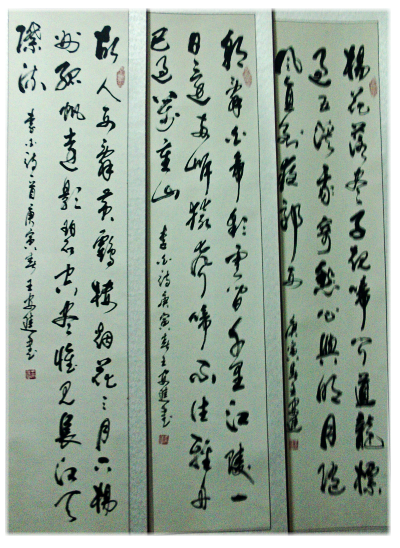 楊花落尽子規啼聞道龍標
過五溪我寄愁心與明月随
風直到夜郎西
庚寅春王
朝辭白帝彩雲間千里江陵一
日還两岸猿聲啼不住輕舟
已過萬重山
李白詩庚寅春王
故人西辭黄鶴楼烟花三月下揚
州孤帆遠影碧空尽惟見長江天
際流
李白詩一首庚寅春王